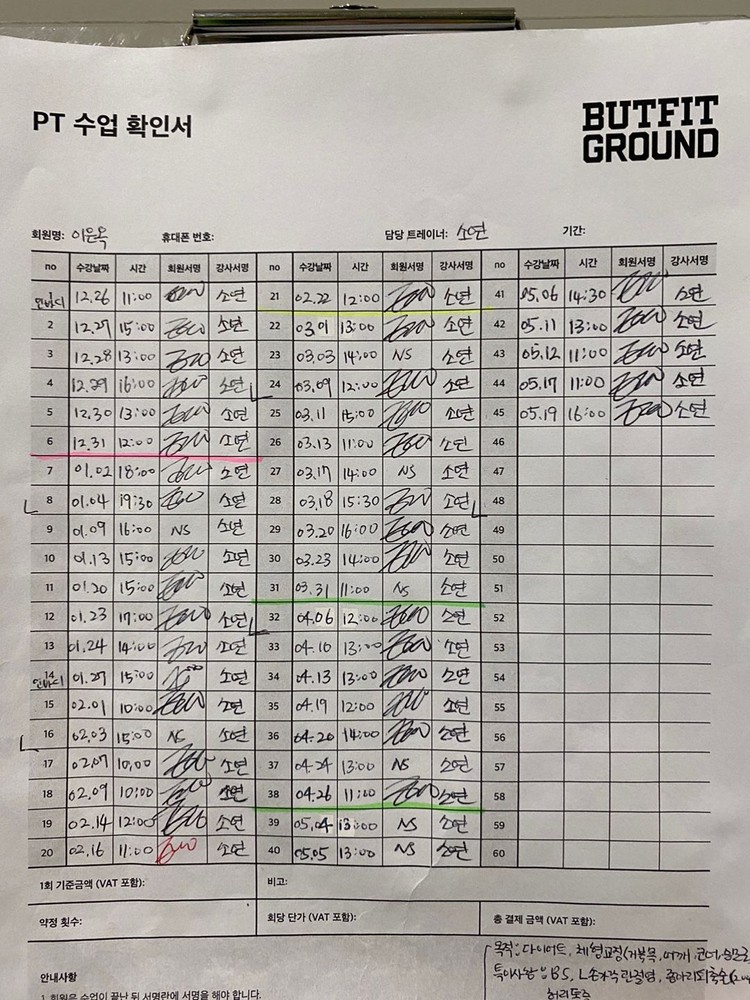 PT 수업 확인서
BUTFIT
GROUND
회원명: 이은옥 휴대폰 번호: 담당 트레이너: 소연 기간:
no 수강날짜 시간 회원서명 강사서명 no 수강날짜 시간 회원서명 강사서명 no 수강날짜 시간 회원서명 강사서명
12.26 11:00 소연 21 02.22 12:00 소연 41 05.06 14:30 소연
2 12.27 15:00 소연 22 03.01 13:00 소연 42 05.11 13:00 소연
3 12.28 13:00 소연 23 03.03 14:00 NS 소연 43 05.12 11:00 소연
4 12.29 16:00 소연 24 03.09 12:00 소연 44 05.17 11:00 소연
5 12.30 13:00 소연 25 03.11 15:00 소연 45 05.19 16:00 소연
6 12.31 12:00 소연 26 03.13 11:00 소연 46
7 01.02 18:00 소연 27 03.17 14:00 NS 소연 47
8 01.04 19:30 소연 28 03.18 15:30 소연 48
9 01.09 16:00 NS 소연 29 03.20 16:00 소연 49
10 01.13 15:00 소연 30 03.23 14:00 소연 50
11 01.20 15:00 소연 31 03.31 11:00 NS 소연 51
12 01.23 17:00 소연 32 04.06 12:00 소연 52
13 01.24 14:00 소연 33 04.10 13:00 소연 53
14 01.27 15:00 소연 34 04.13 13:00 소연 54
15 02.01 10:00 소연 35 04.19 12:00 소연 55
16 02.03 15:00 NS 소연 36 04.20 14:00 소연 56
17 02.07 10:00 소연 37 04.24 13:00 NS 소연 57
18 02.09 10:00 소연 38 04.26 11:00 소연 58
19 02.14 12:00 소연 39 05.04 13:00 NS 소연 59
20 02.16 11:00 소연 40 05.05 13:00 NS 소연 60
1회 기준금액 (VAT 포함): 비고:
약정 횟수: 회당 단가 (VAT 포함): 총 결제 금액 (VAT 포함):
목적: 다이어트, 체형교정(거북목, 어깨
안내사항
1. 회원은 수업이 끝난 뒤 서명란에 서명을 해야 합니다.
허리통증